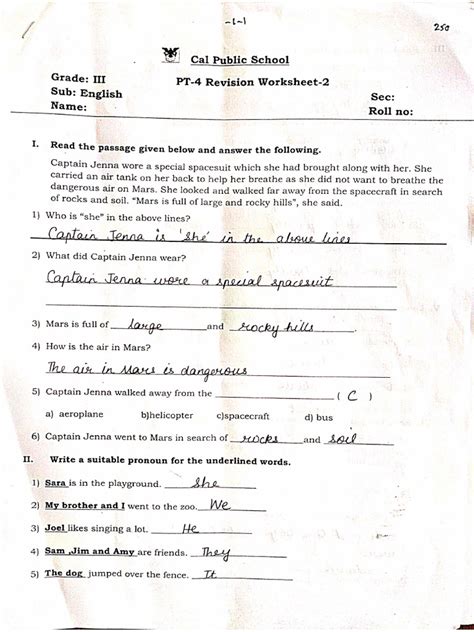 -1-1
250
Cal Public School
Grade: III
PT-4 Revision Worksheet-2
Sub: English
Sec:
Name:
Roll no:
I. Read the passage given below and answer the following.
Captain Jenna wore a special spacesuit which she had brought along with her. She
carried an air tank on her back to help her breathe as she did not want to breathe the
dangerous air on Mars. She looked and walked far away from the spacecraft in search
of rocks and soil. "Mars is full of large and rocky hills", she said.
1) Who is "she" in the above lines?
Captain Jenna is 'she' in the above lines
2) What did Captain Jenna wear?
Captain Jenna wore a special spacesuit
3) Mars is full of large and rocky hills.
4) How is the air in Mars?
The air in Mars is dangerous
5) Captain Jenna walked away from the ( C )
a) aeroplane b)helicopter c)spacecraft d) bus
6) Captain Jenna went to Mars in search of rocks and soil
II. Write a suitable pronoun for the underlined words.
1) Sara is in the playground. She
2) My brother and I went to the zoo. We
3) Joel likes singing a lot. He
4) Sam ,Jim and Amy are friends. They
5) The dog jumped over the fence. It